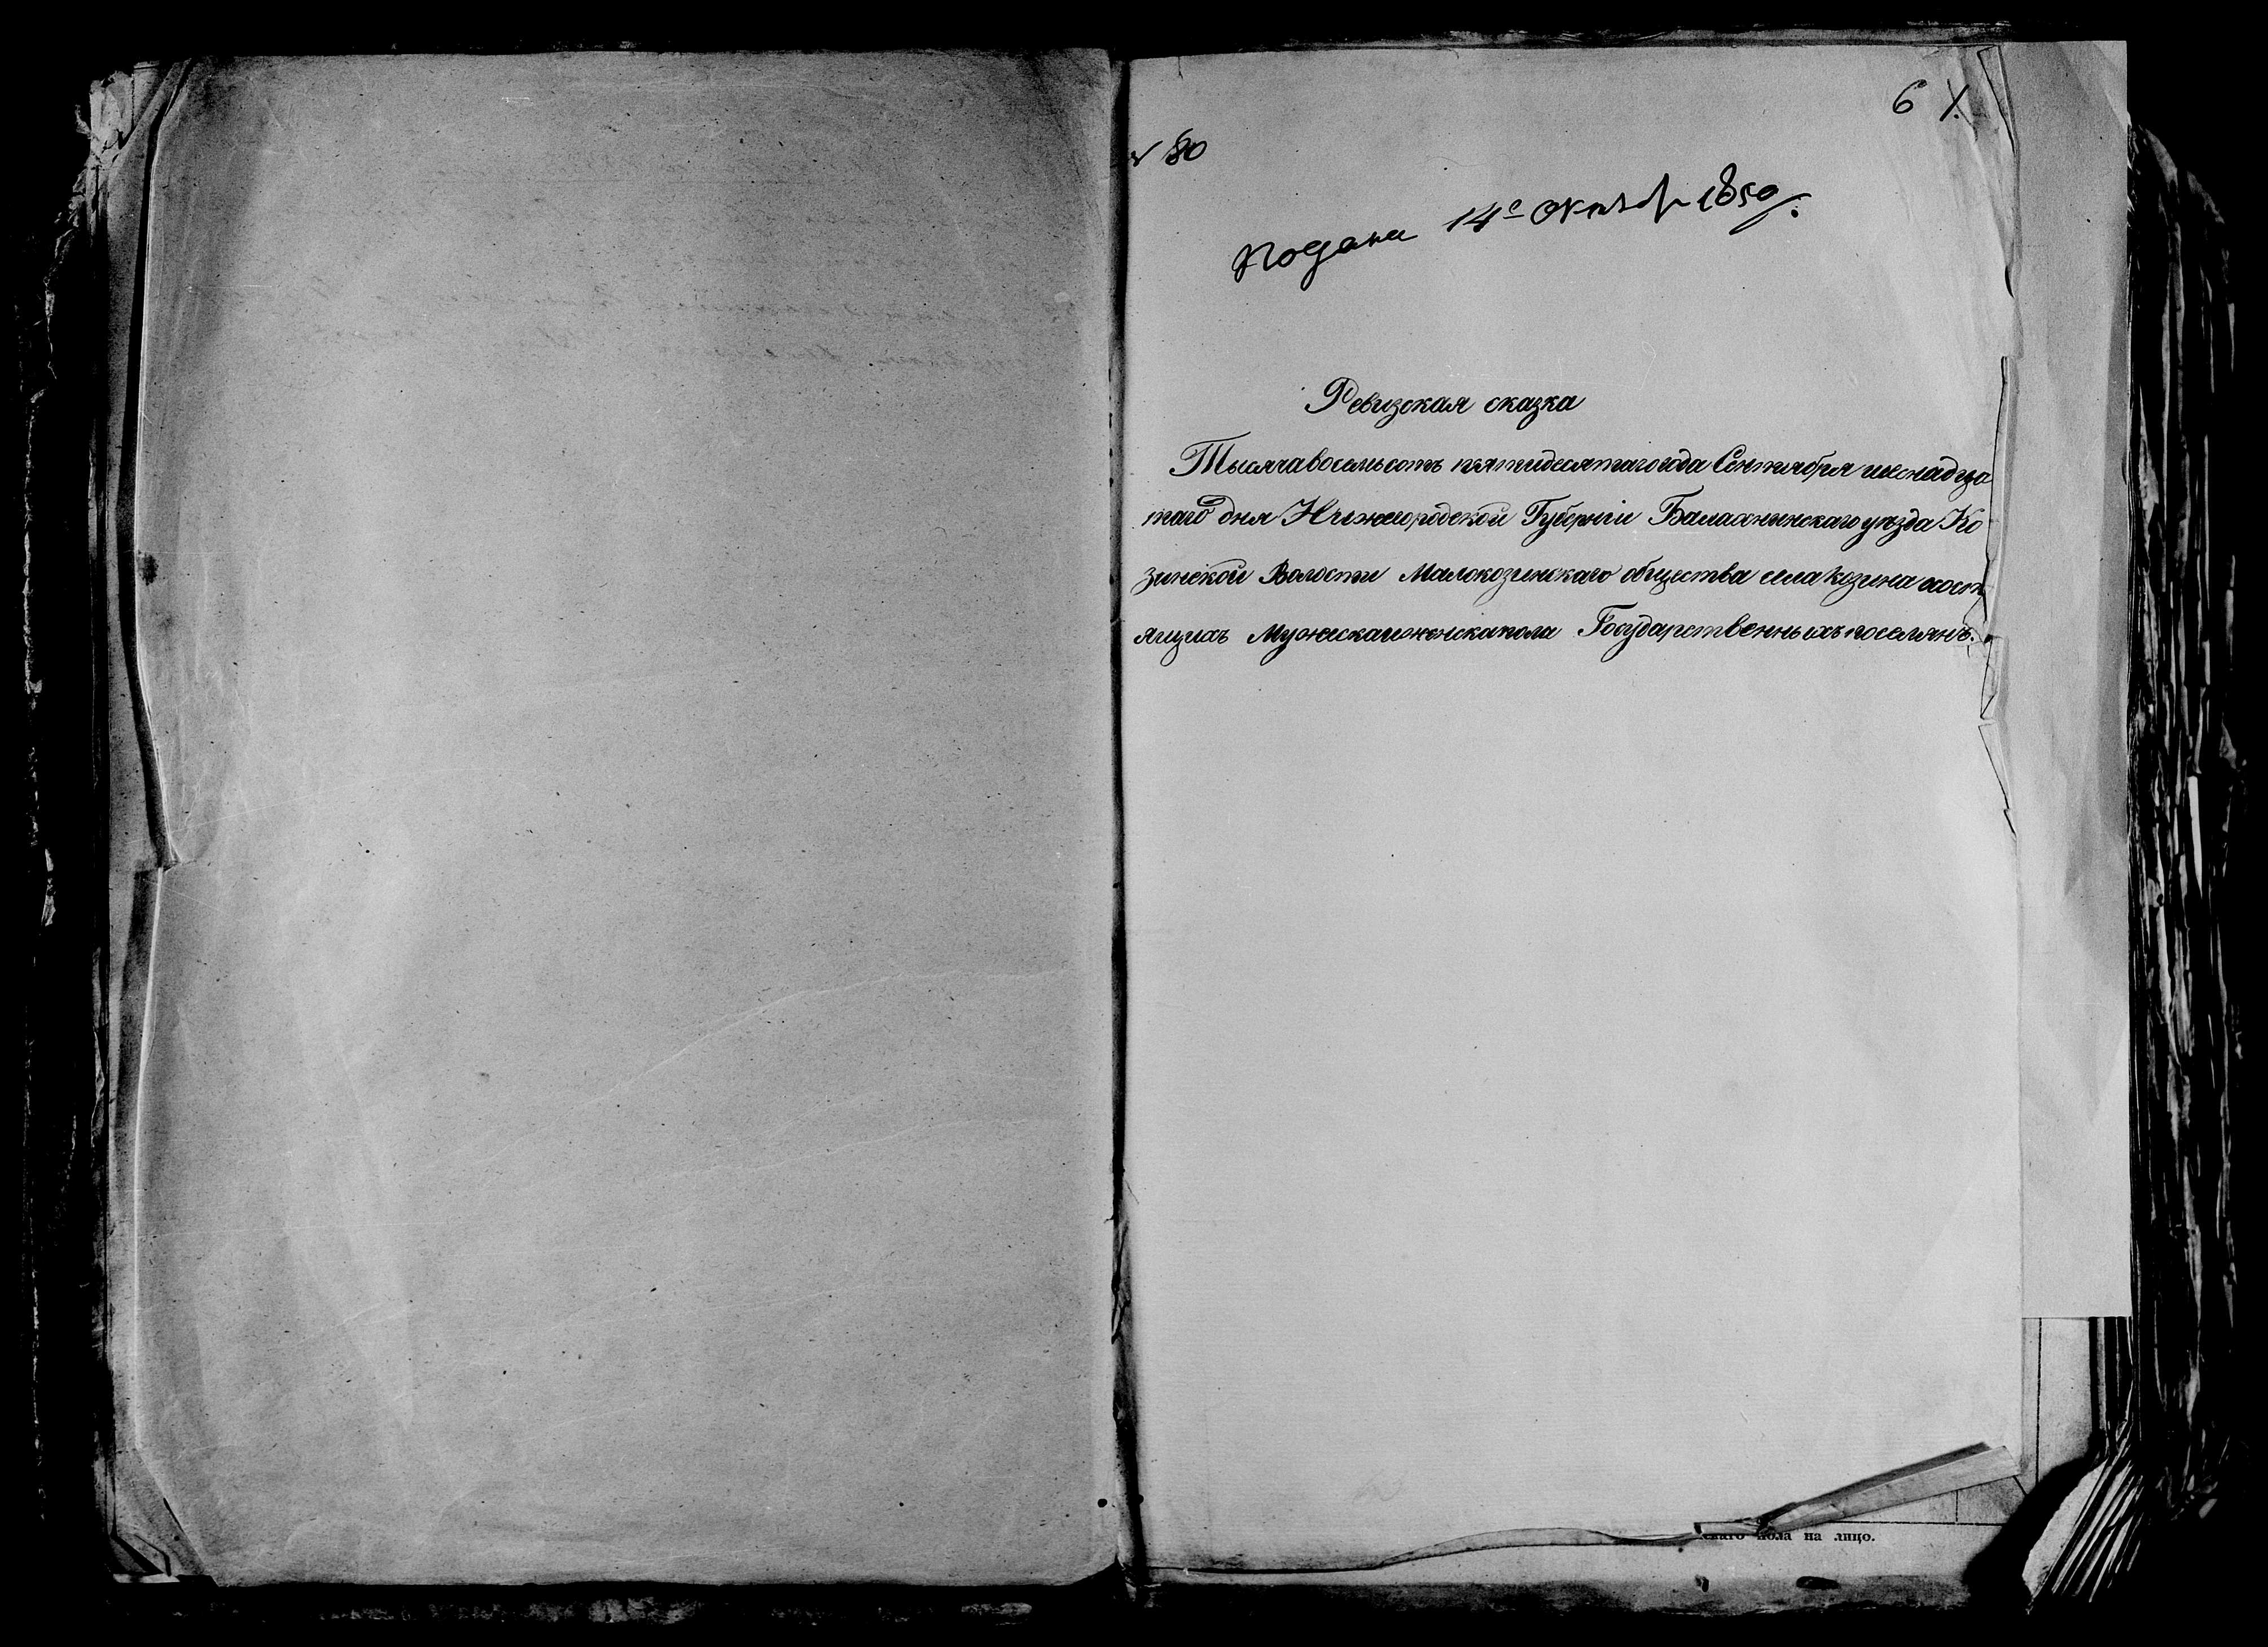 6
№ 80
Подана 14е Октябр 1850.
Ревизская сказка
Тысяча восемьсотъ пятидесятаго года Сентября шеснадца
таго дня Нижегородской Губерніи Балахнинскаго уѣзда Ко
зинской Волости Малокозинскаго общества села Козина состо
ящихъ Мужеска и женска пола Государственныхъ поселянъ.
скаго пола на лицо.